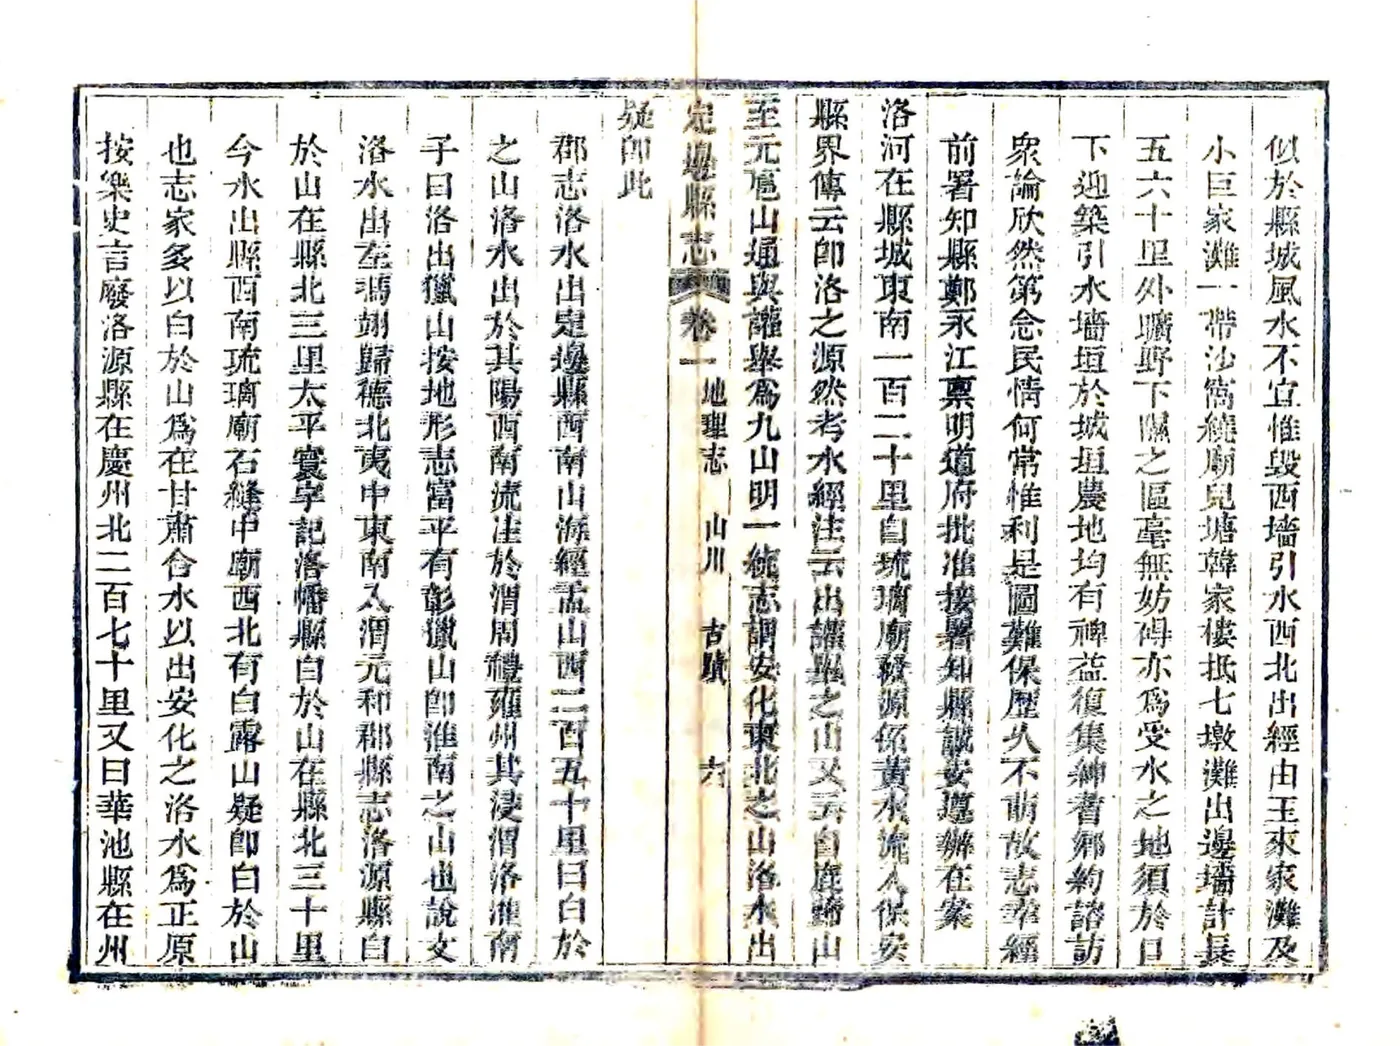 似於縣城風水不宜惟毀西墻引水西北出經由王來家灘及
小巨家灘一帶沙窩繞廟兒塘韓家樓抵七墩灘出邊墻計長
五六十里外曠野下隰之區毫無妨碍亦爲受水之地須於口
下迎築引水墻垣於城垣農地均有裨益復集紳耆鄉約諮訪
衆論欣然第念民情何常惟利是圖難保歷久不萌故志幸經
前署知縣鄭永江禀明道府批准接署知縣誠安遵辦在案
洛河在縣城東南一百二十里自琉璃廟發源係黃水流入保安
縣界傳云卽洛之源然考水經注云出讙舉之山又云自鹿蹄山
至元扈山通與讙舉爲九山明一統志謂安化東北之山洛水出
疑卽此
定邊縣志 卷一 地理志 山川 古蹟 六
郡志洛水出定邊縣西南山海經盂山西二百五十里曰白於
之山洛水出於其陽西南流注於渭周禮雍州其浸渭洛淮南
子曰洛出獵山按地形志富平有彰獵山卽淮南之山也說文
洛水出左馮翊歸德北夷中東南入渭元和郡縣志洛源縣白
於山在縣北三里太平寰宇記洛蟠縣白於山在縣北三十里
今水出縣西南琉璃廟石縫中廟西北有白露山疑卽白於山
也志家多以白於山爲在甘肅合水以出安化之洛水爲正原
按樂史言廢洛源縣在慶州北二百七十里又曰華池縣在州